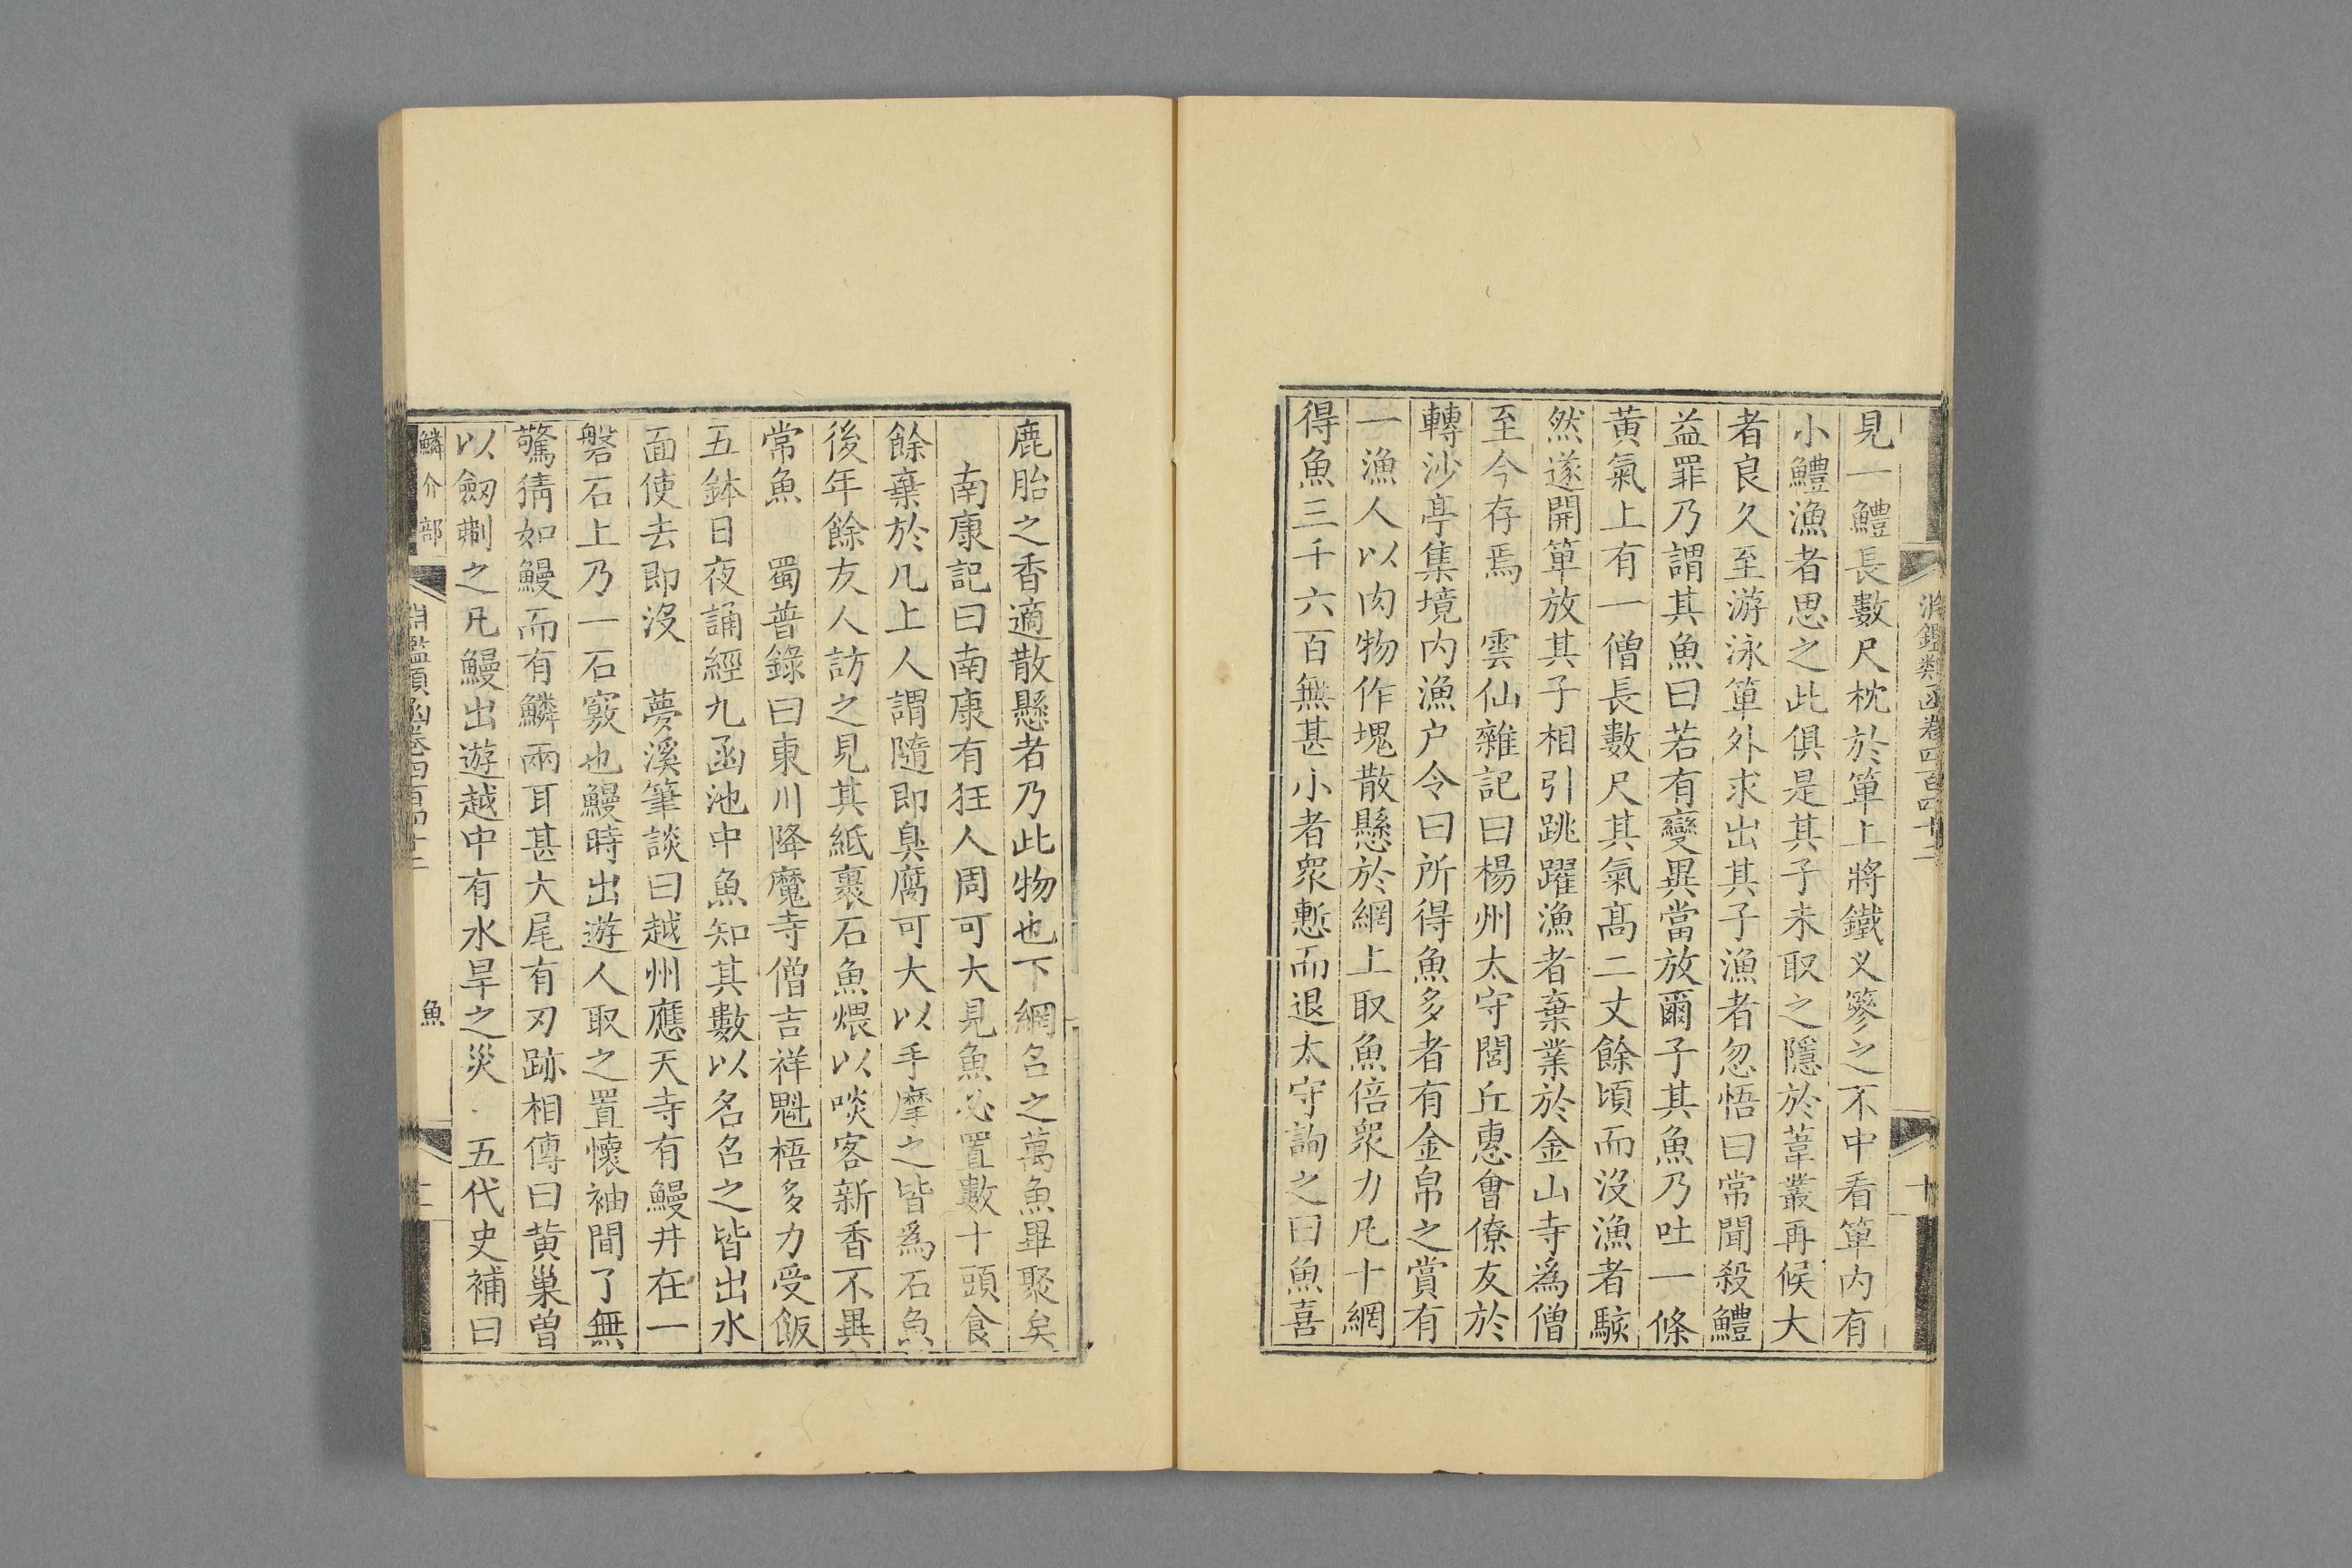 淵鑑類函卷四百四十二
十
見一鱧長數尺枕於簞上將鐵叉篸之不中看簞內有
小鱧漁者思之此俱是其子未取之隱於葦叢再候大
者良久至游泳簞外求出其子漁者忽悟曰常聞殺鱧
益罪乃謂其魚曰若有變異當放爾子其魚乃吐一條
黃氣上有一僧長數尺其氣髙二丈餘頃而沒漁者駭
然遂開簞放其子相引跳躍漁者棄業於金山寺為僧
至今存焉　雲仙雜記曰楊州太守閻丘惠會僚友於
轉沙亭集境內漁户令曰所得魚多者有金帛之賞有
一漁人以肉物作塊散懸於網上取魚倍衆力凡十網
得魚三千六百無甚小者衆慙而退太守詢之曰魚喜
鹿胎之香適散懸者乃此物也下網名之萬魚畢聚矣
南康記曰南康有狂人周可大見魚必置數十頭食
餘棄於几上人謂隨即臭腐可大以手摩之皆為石魚
後年餘友人訪之見其紙裹石魚煨以啖客新香不異
常魚　蜀普錄曰東川降魔寺僧吉祥魁梧多力受飯
五鉢日夜誦經九函池中魚知其數以名名之皆出水
面使去即沒　夢溪筆談曰越州應天寺有鰻井在一
磐石上乃一石竅也鰻時出遊人取之置懷袖間了無
驚猜如鰻而有鱗兩耳甚大尾有刃跡相傳曰黃巢曾
以劒刜之凡鰻出遊越中有水旱之災　五代史補曰
鱗介部
淵鑑類函卷四百四十二
魚